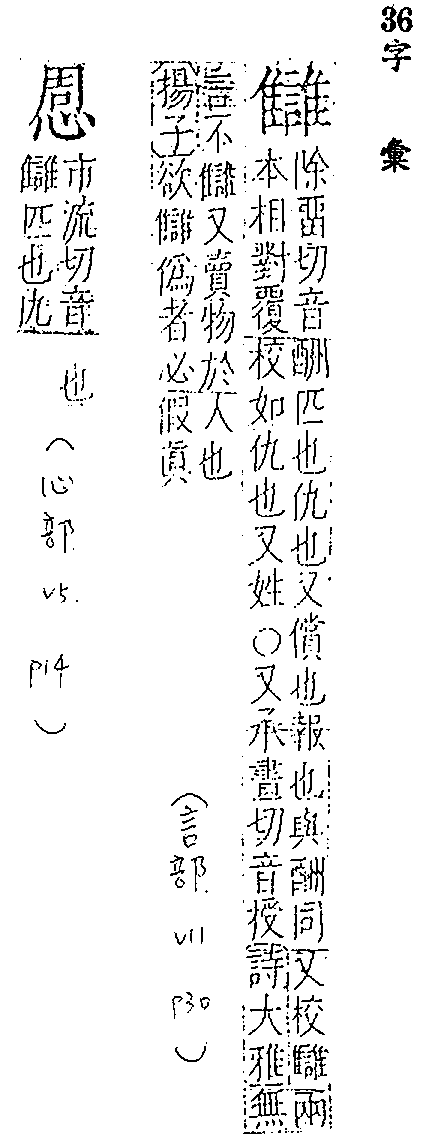 36字　彙
讎
除畱切音酬匹也仇也又償也報也與酬同又校讎兩
本相對覆校如仇也又姓○又承晝切音授詩大雅無
言不讎又賣物於人也
揚子欲讎偽者必假真
(言部 V11 P30)
㤽
市流切音
讎匹也仇
也
(心部 V5. P14)